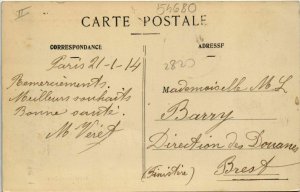 II
54680
CARTE POSTALE
CORRESPONDANCE
ADRESSE
2820
Paris 21-1-14
Remerciements.
Meilleurs souhaits
Bonne santé.
M Veret
Mademoiselle M. L
Barry
Direction des Douanes
(Finistère) Brest